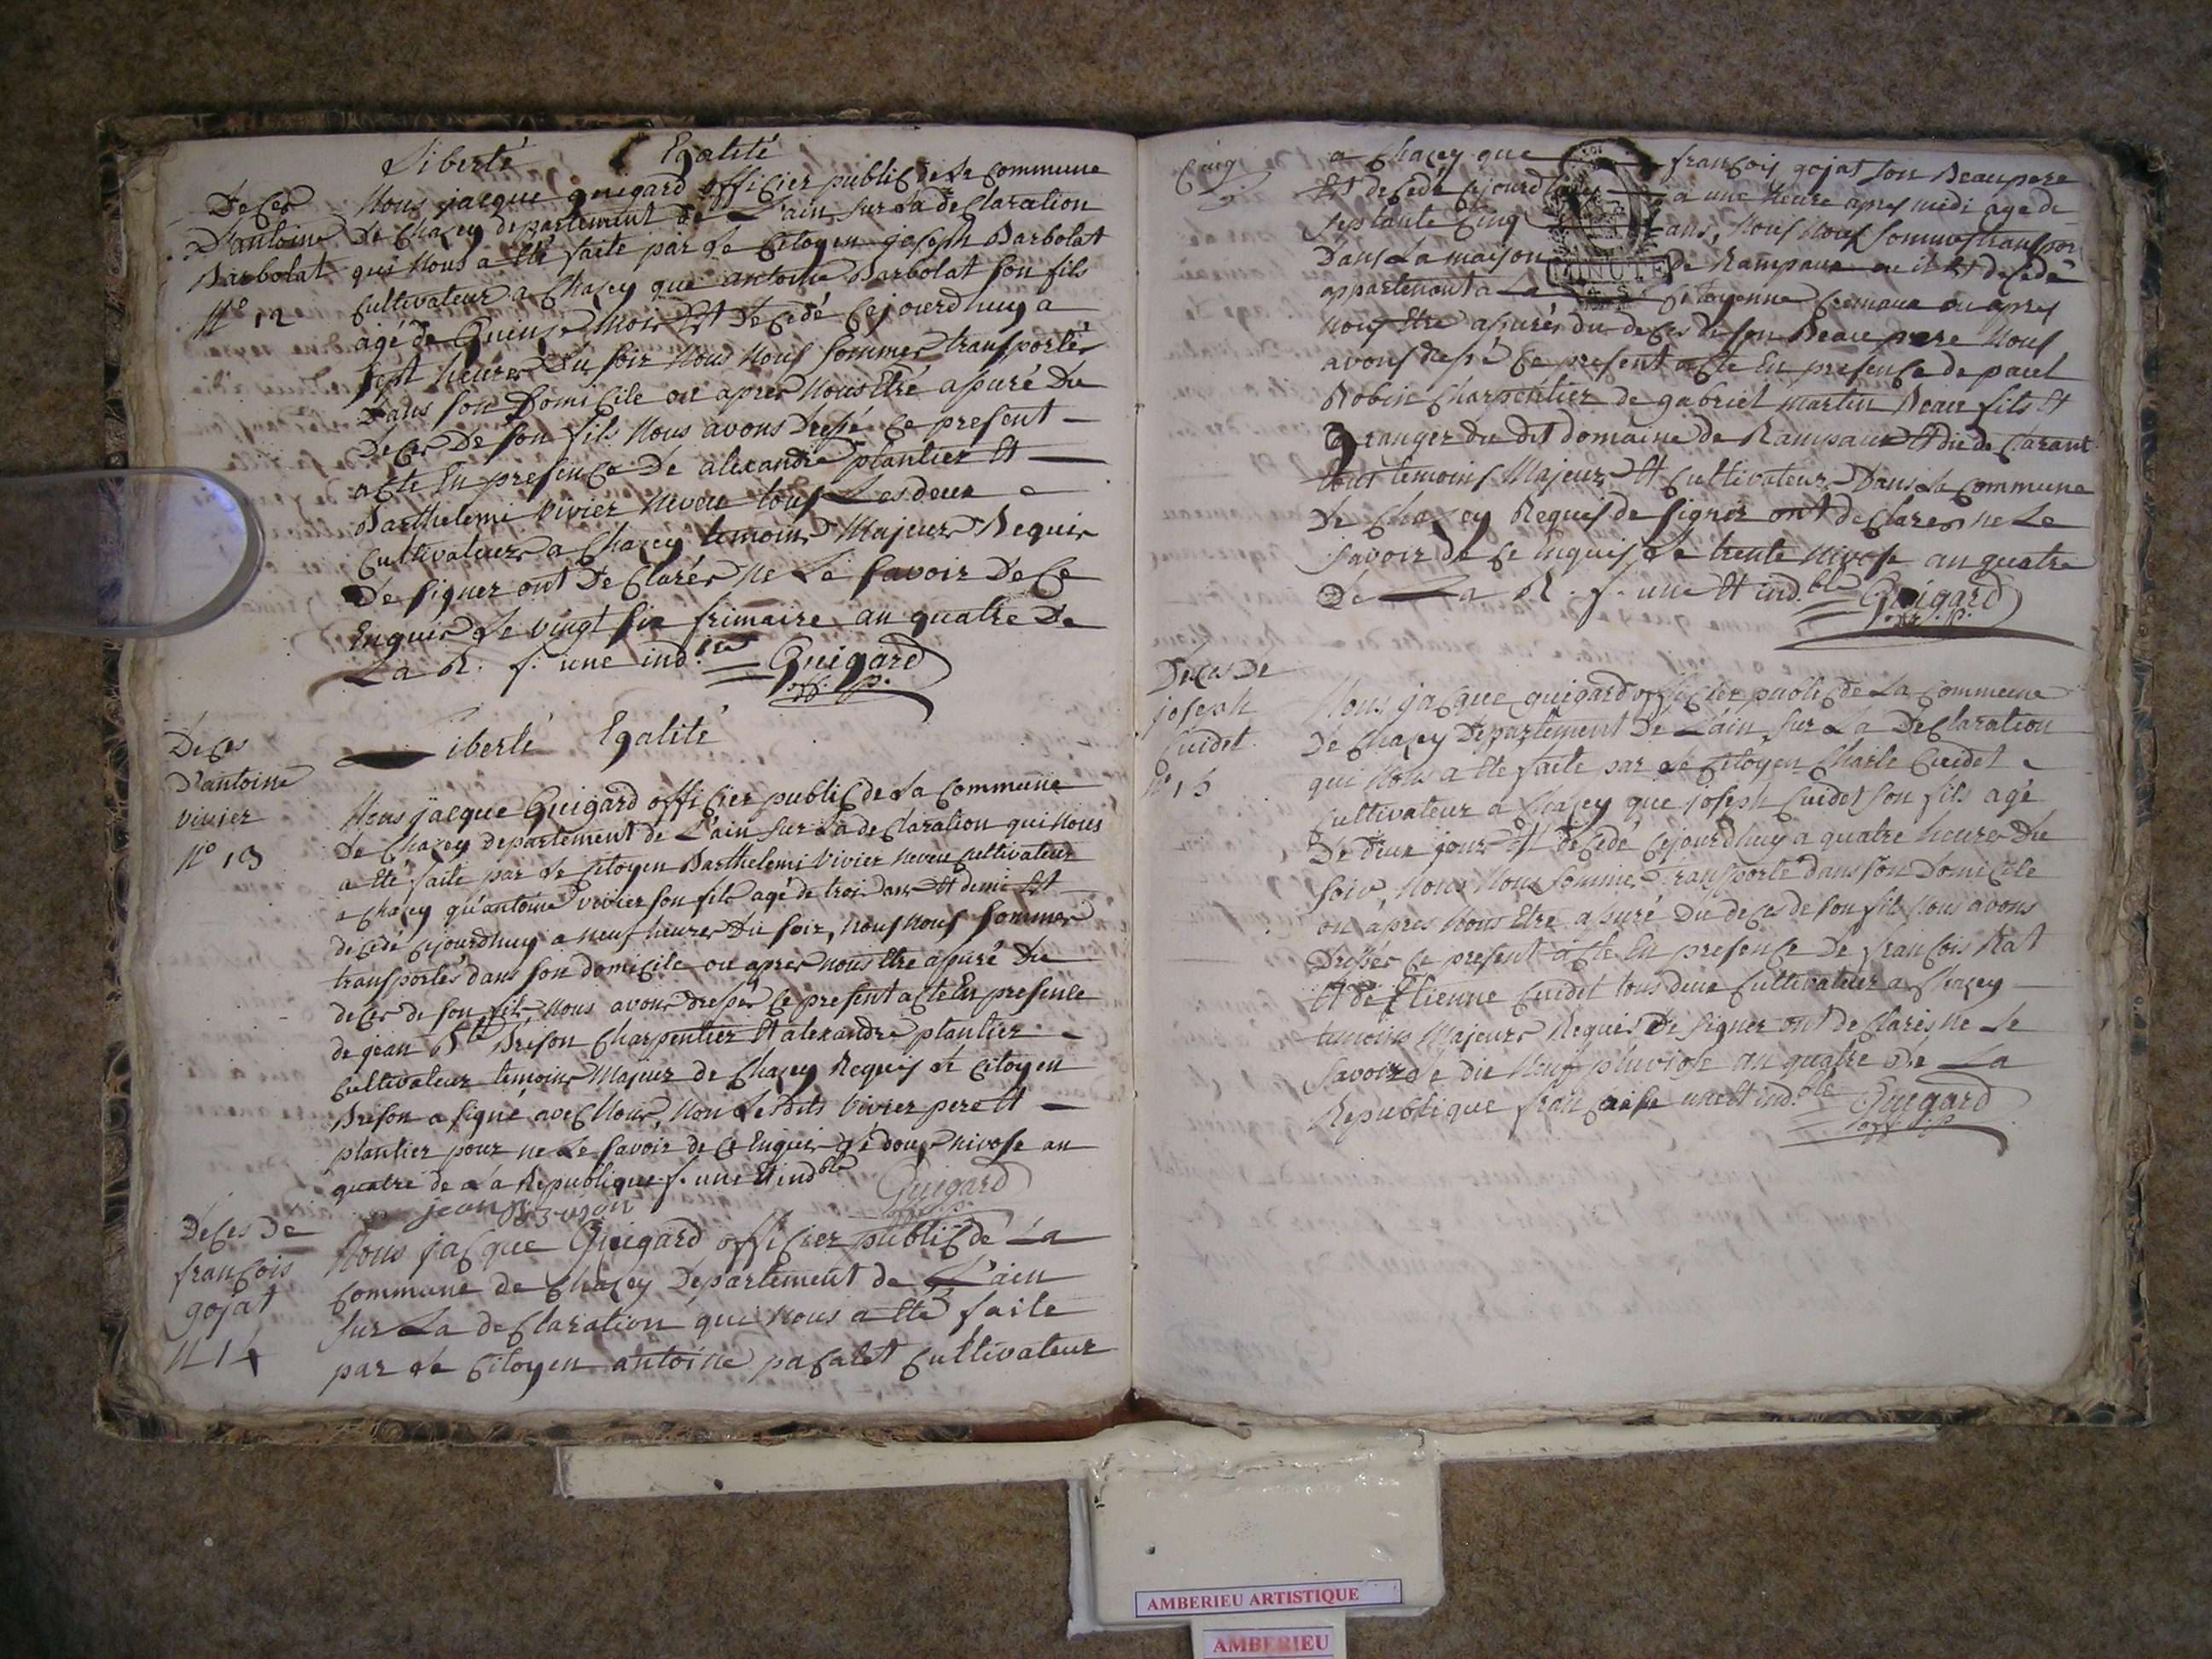 Liberté Egalité
Deces
D'antoine
Barbolat
N° 12
Nous jacque guigard officier public de la commune
De Chazey departement de L'ain sur La declaration
qui Nous a été faite par le Citoyen joseph Barbolat
Cultivateur a Chazey que antoine Barbolat son fils
agé de Quinze mois Est Decedé Cejourdhuy a
sept heures Du soir Nous Nous sommes transportés
Dans son Domicile ou apres Nous Etre asuré Du
Deces De son fils Nous avons Dressé Ce present
acte En presence De alexandre plantier Et
Barthelemi vivier Neveu tous Les deux
Cultivateurs a Chazey temoins Majeurs Requis
De signer ont De Clarés Ne Le savoir De Ce
Enquis Le vingt six frimaire an quatre De
La R. f. une ind.ble Guigard
off. p.
Deces
D'antoine
vivier
N° 13
Liberté Egalité
Nous jacque Guigard officier public de La Commune
De Chazey departement de L'ain sur La de Claration qui Nous
a été faite par Le Citoyen Barthelemi vivier neveu Cultivateur
a Chazey qu'antoine vivier son fils agé de trois ans Et demi Est
decedé Cejourdhuy a neuf heures Du soir, Nous Nous sommes
transportés dans son domicile ou apres nous Etre asuré Du
deces de son fils, Nous avons dressés Ce present acte En presence
de jean Bte Brison Charpentier Et alexandre plantier
Cultivateur temoins Majeur de Chazey Requis Le Citoyen
Brison a signé avec Nous, Non Lesdits vivier pere Et
plantier pour ne Le savoir de Ce Enquis Le douze nivose an
quatre de La Republique f. une Et ind.ble Guigard
off. p.
jean
Deces De
françois
gojat
N 14
Nous jacque Guigard officier public de La
Commune de Chazey Departement de L'ain
sur La declaration que Nous a été faite
par Le Citoyen antoine pacalet Cultivateur
Cinq
a Chazey que françois gojat son Beaupere
Est decedé Cejourdhuy a une heure apres midi age de
septante Cinq ans, Nous Nous sommes transpor
Dans La maison De Rampaux ou il Est decedé
appartenant a La Citoyenne Cremaux ou apres
nous Etre asurés du deces de son Beau pere Nous
avons dressé Ce present acte En presence de paul
Robin Charpentier de gabriel martin Beau fils Et
granger du dit domaine de Rampaux Et du de Clarant
tous temoins Majeurs Et Cultivateurs Dans la Commune
De Chazey Requis de signer ont de Clares ne Le
savoir de Ce inquis Le trente nivose an quatre
De La R. f. une Et ind.ble Guigard
off. p.
MINUTE
Deces De
joseph
Cuidet
N° 15
Nous jacque guigard officier public de La Commune
De Chazey Departement De L'ain, sur La De Claration
qui Nous a Ete faite par Le Citoyen Charle Cuidet
Cultivateur a Chazey que joseph Cuidet son fils agé
De deux jours Est decedé Cejourdhuy a quatre heures Du
soir, Nous Nous sommes transporté dans son Domicile
ou apres Nous Etre asuré Du deces de son fils Nous avons
Dressés Ce present acte En presence De françois Rat
Et de Etienne Cuidet tous deux Cultivateur a Chazey
temoins Majeurs Requis De signer ont de Clarés ne Le
savoir Le dix Neuf pluviose an quatre De La
Republique françaisse une Et ind.ble Guigard
off. p.
AMBERIEU ARTISTIQUE
AMBERIEU